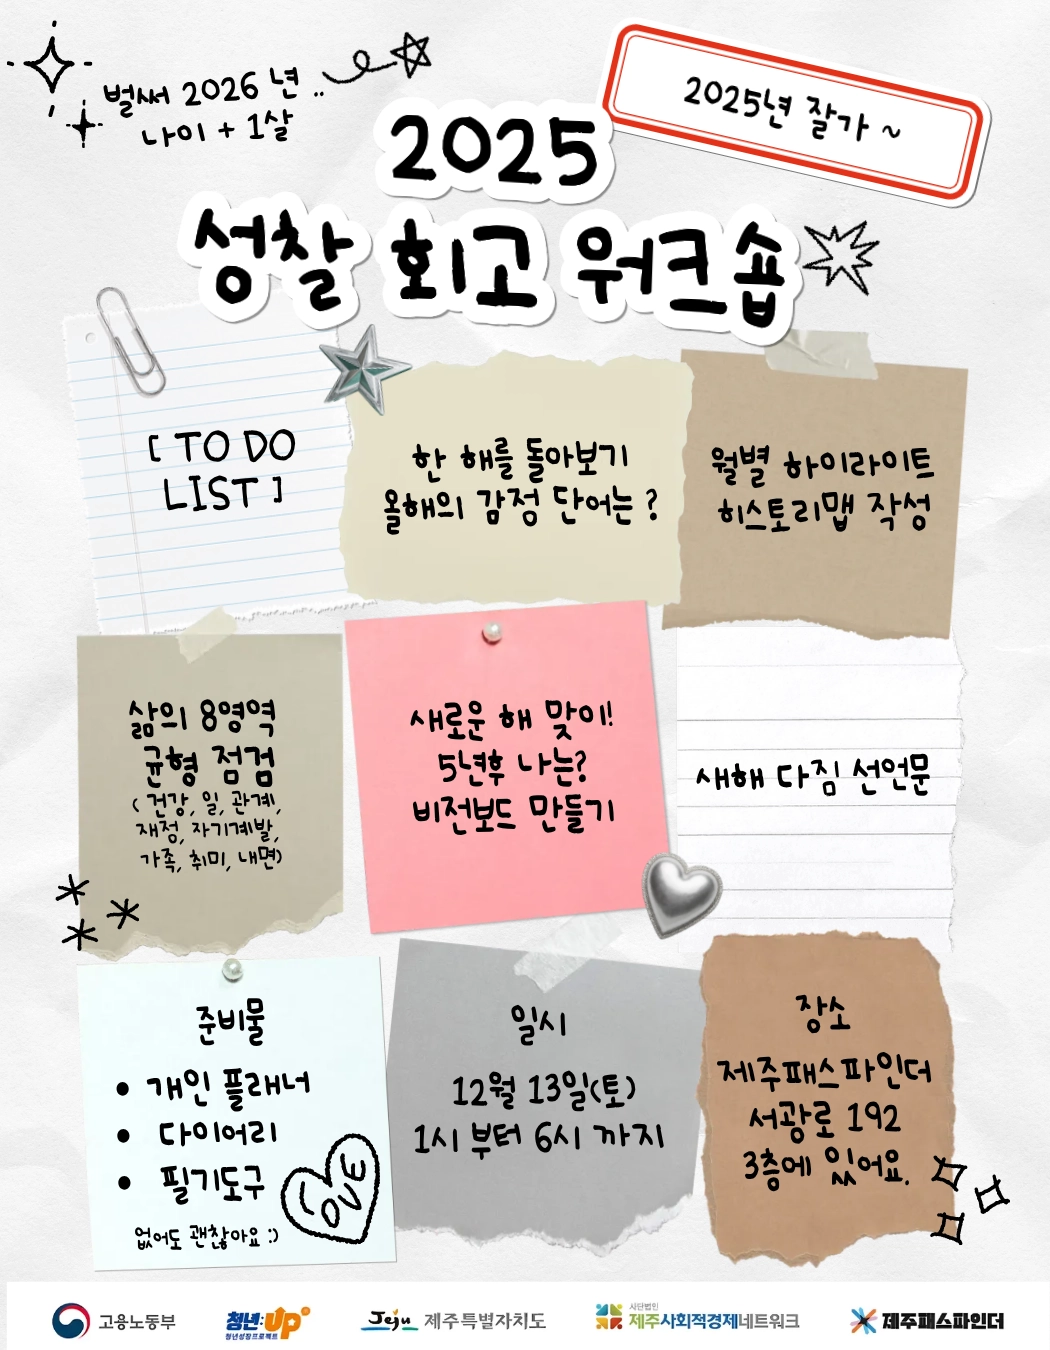 벌써 2026 년 ..
나이 + 1살
2025년 잘가 ~
2025
성찰 회고 워크숍
[ TO DO
LIST ]
한 해를 돌아보기
올해의 감정 단어는 ?
월별 하이라이트
히스토리맵 작성
삶의 8영역
균형 점검
( 건강, 일, 관계,
재정, 자기계발,
가족, 취미, 내면)
새로운 해 맞이!
5년후 나는?
비전보드 만들기
새해 다짐 선언문
준비물
• 개인 플래너
• 다이어리
• 필기도구
없어도 괜찮아요 :)
LOVE
일시
12월 13일(토)
1시 부터 6시 까지
장소
제주패스파인더
서광로 192
3층에 있어요.
고용노동부
청년:UP
청년성장프로젝트
Jeju 제주특별자치도
사단법인
제주사회적경제네트워크
제주패스파인더